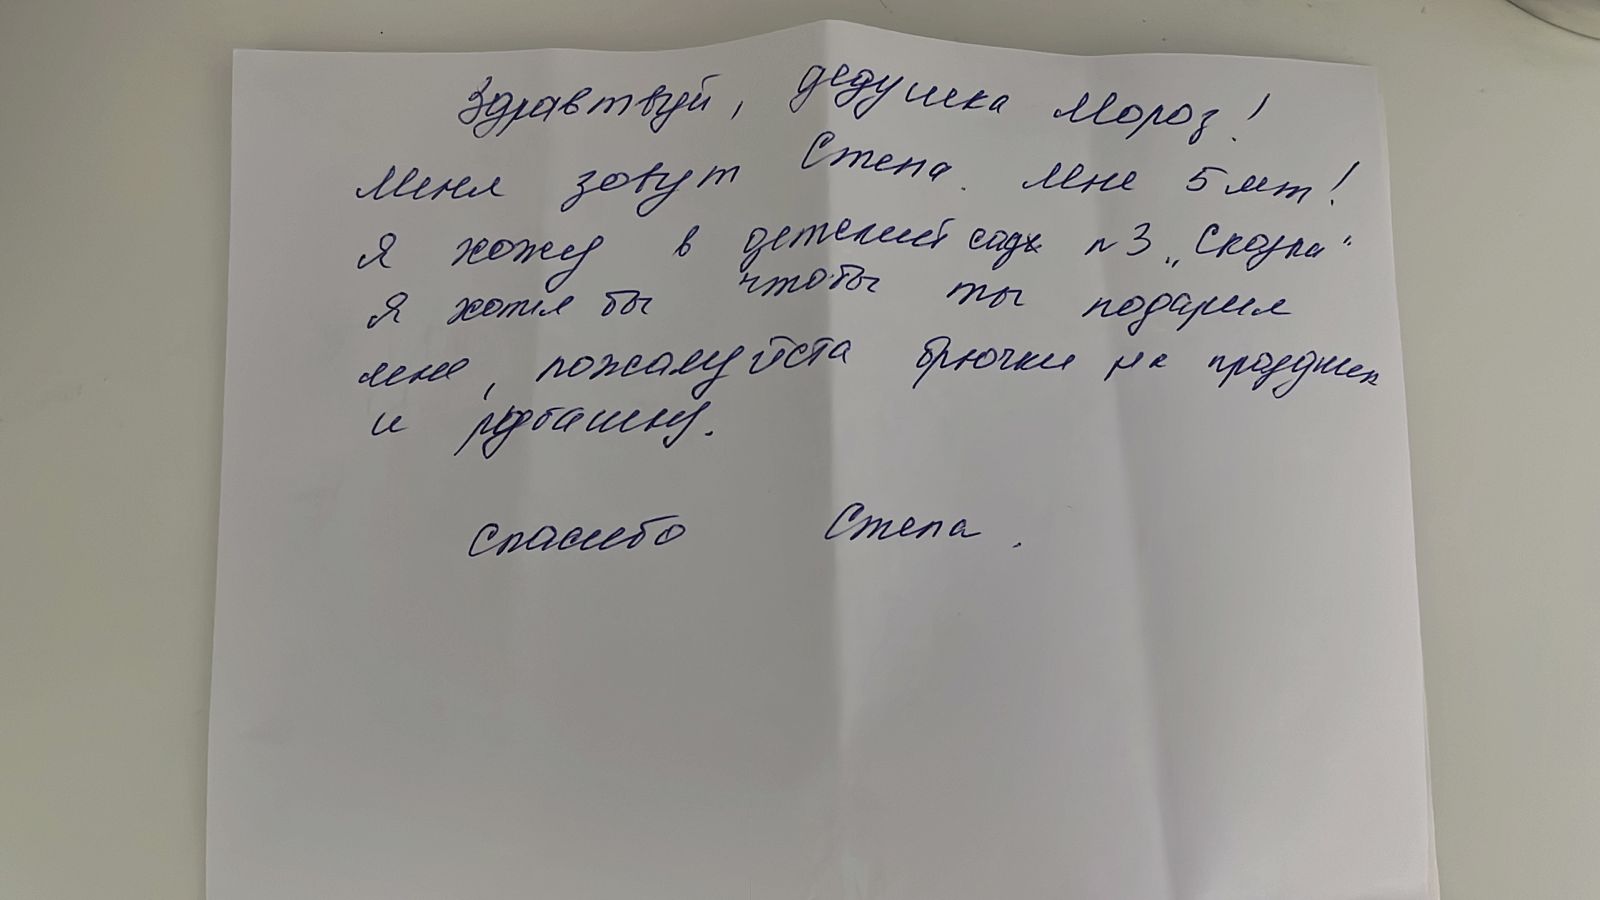 Здравтвуй, дедушка Мороз!
Меня зовут Степа. Мне 5 лет!
Я хожу в детский садк n 3 „Сказка“
Я хотел бы чтобы ты подарил
мне, пожалуйста брючки на праздник
и рубашку.
Спасибо Степа.